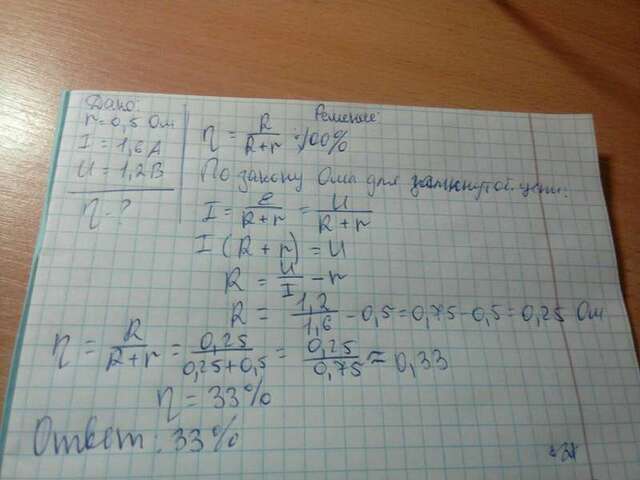 Дано:
r = 0,5 Ом
I = 1,6 А
U = 1,2 В
η - ?
Решение:
η = R / R+r · 100%
По закону Ома для замкнутой цепи:
I = e / R+r = U / R+r
I (R + r) = U
R = U / I - r
R = 1,2 / 1,6 - 0,5 = 0,75 - 0,5 = 0,25 Ом
η = R / R+r = 0,25 / 0,25+0,5 = 0,25 / 0,75 ≈ 0,33
η = 33%
Ответ: 33%